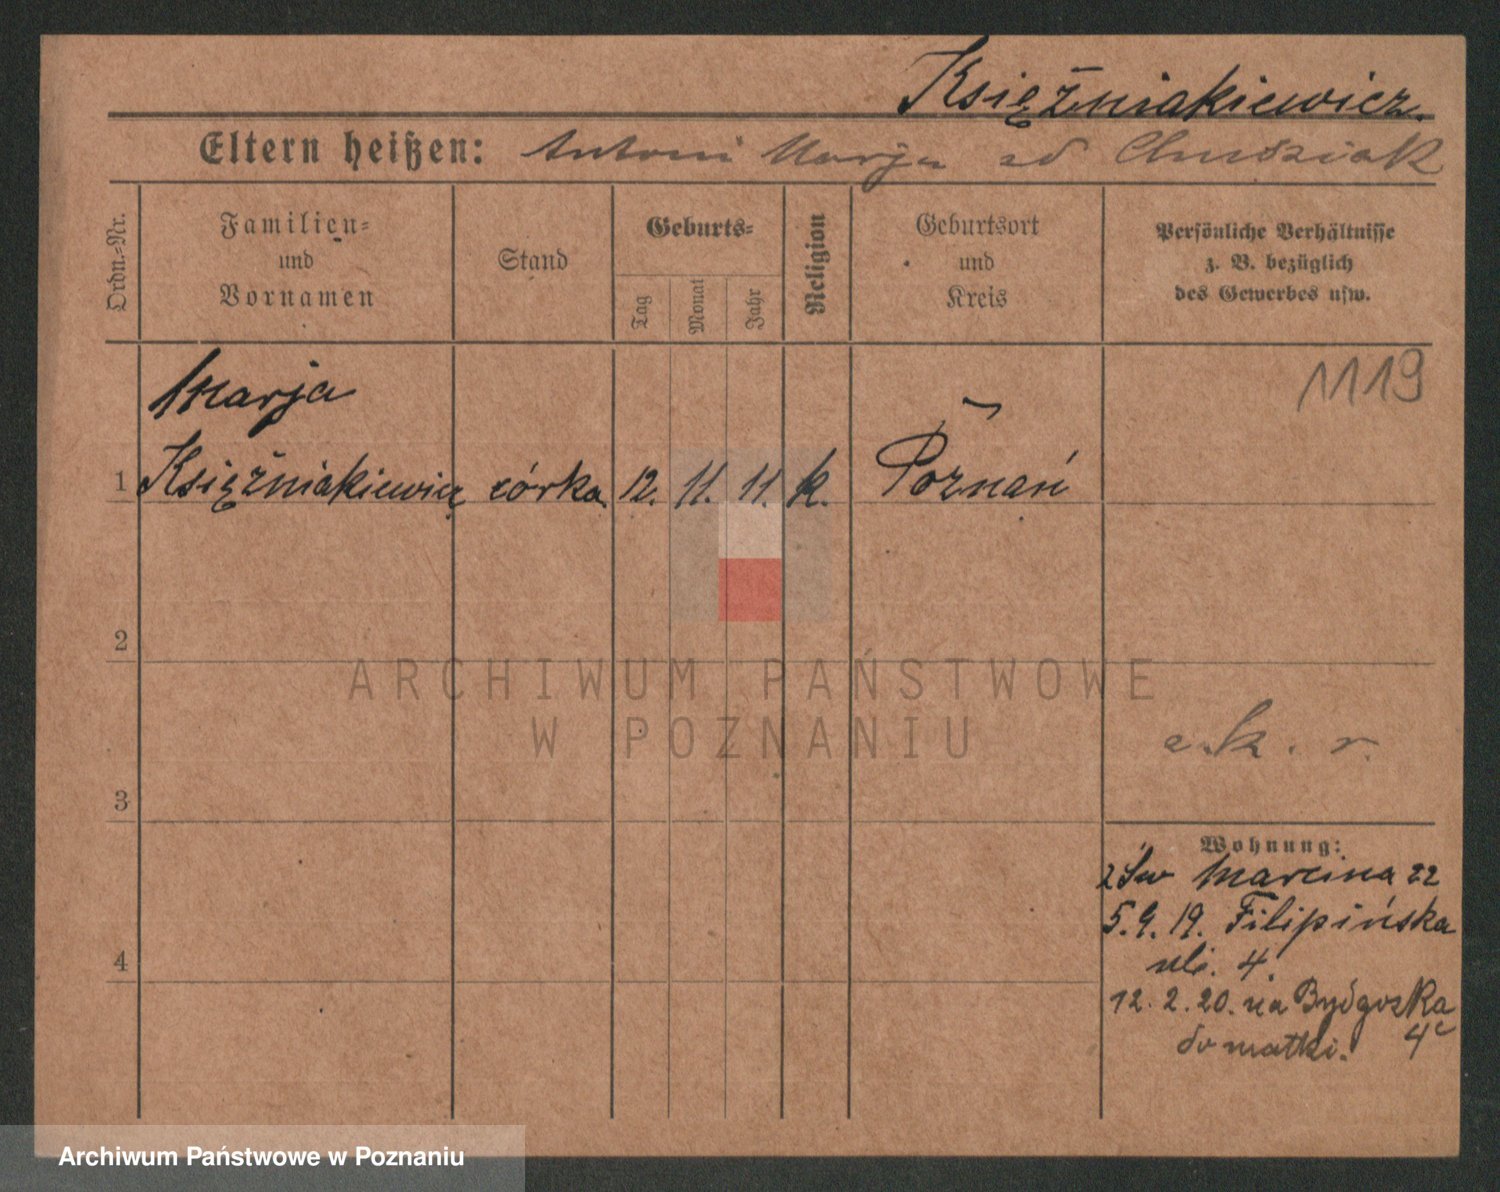 Księżniakiewicz.
Eltern heißen: Antoni Marja
Ordn.-Nr.
Familien-
und
Vornamen
Stand
Geburts-
Tag
Monat
Jahr
Religion
Geburtsort
und
Kreis
Persönliche Verhältnisse
z. B. bezüglich
des Gewerbes usw.
1119
Marja
1 Księżniakiewicz córka 12. 11. 11. k. Poznań
2
ARCHIWUM PAŃSTWOWE
W POZNANIU
3
Wohnung:
Św Marcina 22
5.9.19. Filipińska
uli. 4.
4
12.2.20. na Bydgoska
4c
do matki.
Archiwum Państwowe w Poznaniu